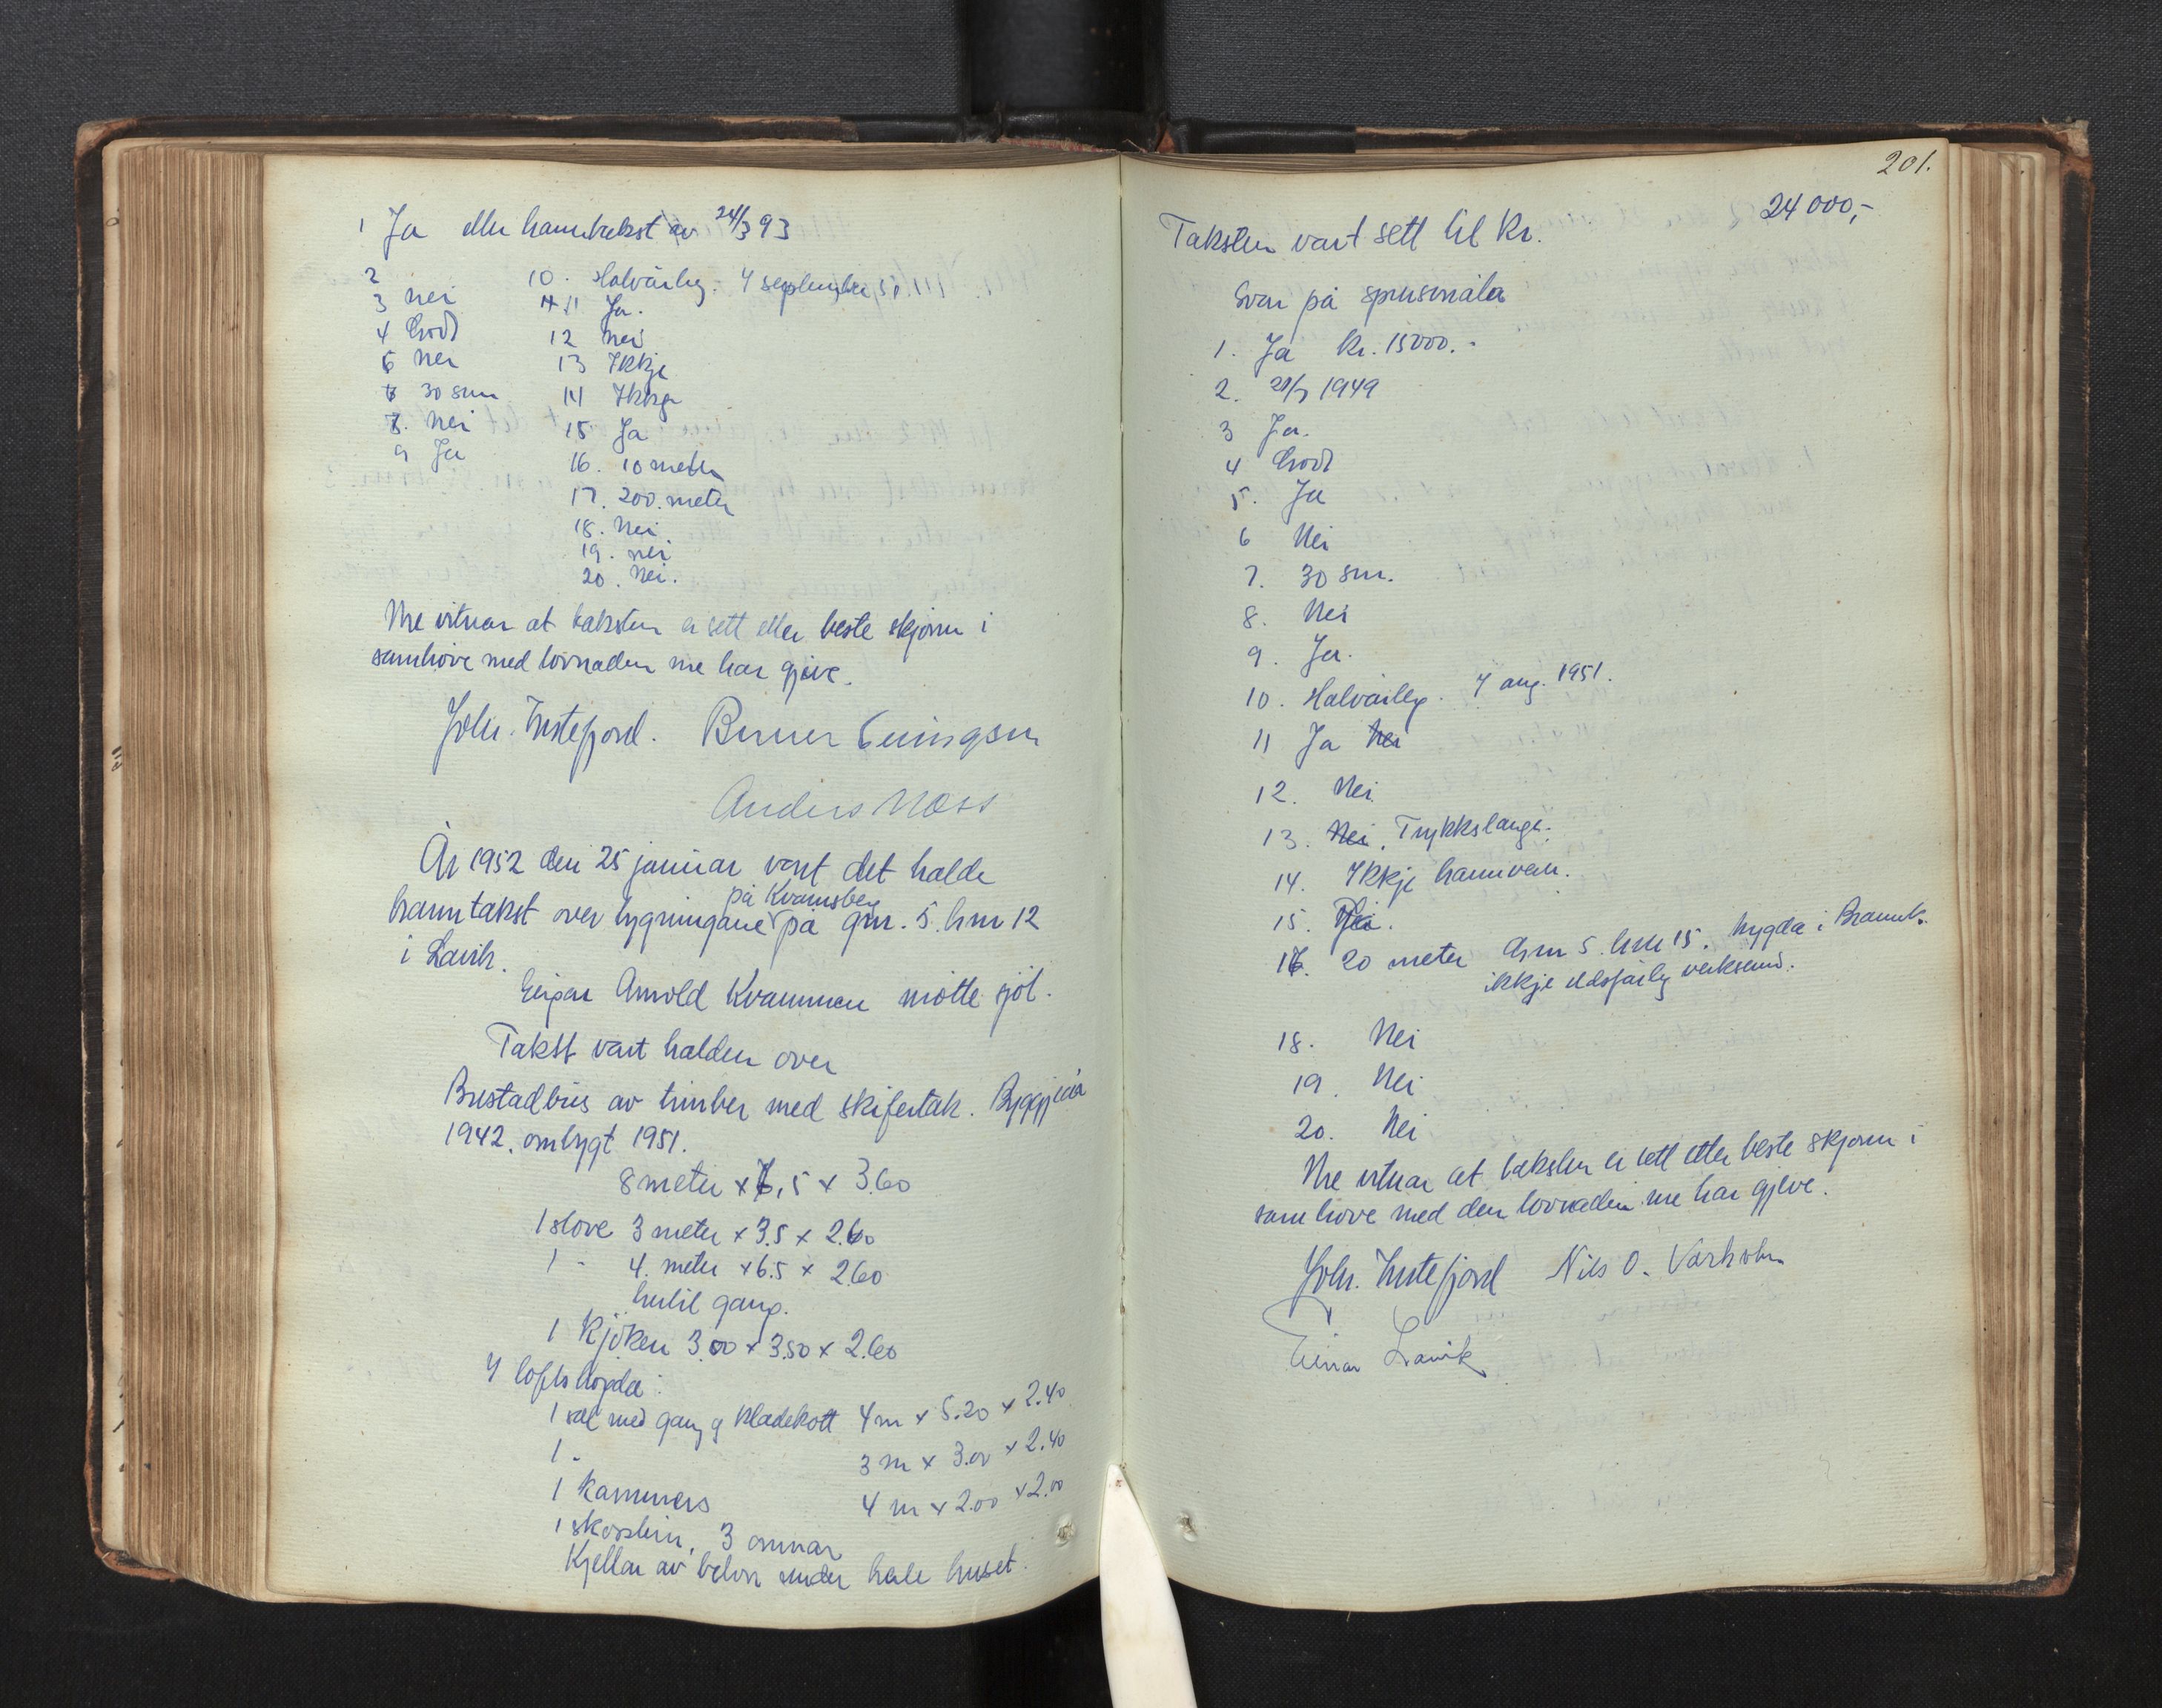 1 Ja eller branntakst av 24/3 93
2
3 Nei
4 Godt
5 Nei
6 30 sm
8. Nei
9 Ja
10. Halvårleg. 4 september 51
11 Ja.
12 Nei
13 Ikkje
14 Ikkje
15 Ja
16. 10 meter
17. 200 meter
18. Nei.
19. nei
20. Nei.
Me vitnar at taksten er sett etter beste skjønn i
samhøve med lovnaden me har gjeve.
Joh. Instefjord.
Anders Næss
År 1952 den 25 januar vart det halde
på Kvamsberg
branntakst over bygningane på gnr. 5. bnr 12
i Lavik.
Eigar Arnold Kvammen møtte sjøl.
Takst vart halden over
Bustadhus av timber med skifertak. Byggjeår
1942. ombygt 1951.
8 meter x 7,5 x 3.60
1 stove 3 meter x 3.5 x 2.60
1 - 4. meter x 6.5 x 2.60
hertil gang.
1 kjøken 3.00 x 3.50 x 2.60
I loftshøgda:
1 sal med gang og kladekott 4 m x 5.20 x 2.40
1 - 3 m x 3.00 x 2.40
1 kammers 4 m x 2.00 x 2.00
1 skorstein, 3 omnar
Kjellar av betong under heile huset.
201.
Taksten vart sett til Kr. 24000,-
Svar på spursmåla
1. Ja Kr. 15000.-
2. 1949
3 Ja.
4 Godt
5. Ja
6 Nei
7. 30 sm.
8. Nei
9. Ja.
10. Halvårleg. 4 aug. 1951.
11 Ja Nei
12. Nei
13. Nei. Trykkslange.
14. Ikkje brannvern.
15.
16. 20 meter Gnr 5. bnr 15. bygda i Brannk.
ikkje eldsfårleg verksemd.
18. Nei
19. Nei
20. Nei
Me vitnar at taksten er sett etter beste skjønn i
samhøve med den lovnaden me har gjeve.
Joh. Instefjord Nils O. Varholm
Einar Lavik